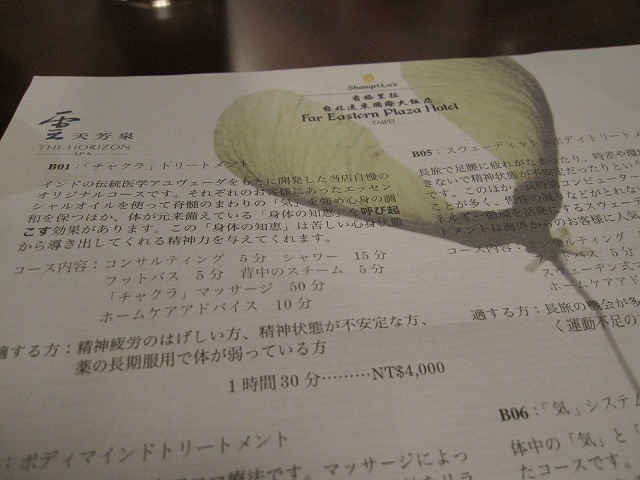 Shangri-La's
香格里拉
台北遠東國際大飯店
Far Eastern Plaza Hotel
TAIPEI
雲天芳泉
THE HORIZON
SPA
B01：「チャクラ」トリートメント
インドの伝統医学アユヴェーダをもとに開発した当店自慢の
オリジナルコースです。それぞれのお客様にあったエッセン
シャルオイルを使って脊髄のまわりの「気」を強め心身の調
和を保つほか、体が元来備えている「身体の知恵」を呼び起
こす効果があります。この「身体の知恵」は苦しい心身状態
から導き出してくれる精神力を与えてくれます。
コース内容：コンサルティング 5分 シャワー 15分
フットバス 5分 背中のスチーム 5分
「チャクラ」マッサージ 50分
ホームケアアドバイス 10分
適する方：精神疲労のはげしい方、精神状態が不安定な方、
薬の長期服用で体が弱っている方
1時間30分………NT$4,000
：ボディマインドトリートメント
療法です。マッサージによっ
B05：スウェーディッシュボディトリート
長旅で足腰に疲れがたまったり、時差や環
きないで精神状態が不安定だったりとい
です。このほか、長時間コンピューター
ことが多く、慢性の凝りなどがとれな
ネルギー循環を活発にするスウェーデ
トメントは海外からのお客様に人気
コース内容：コンサルティング
フットバス 5分
スウェーデン式
ホームケアア
適する方：長旅の機会が多
く運動不足の
B06：「気」システム
体中の「気」と「
たコースです。